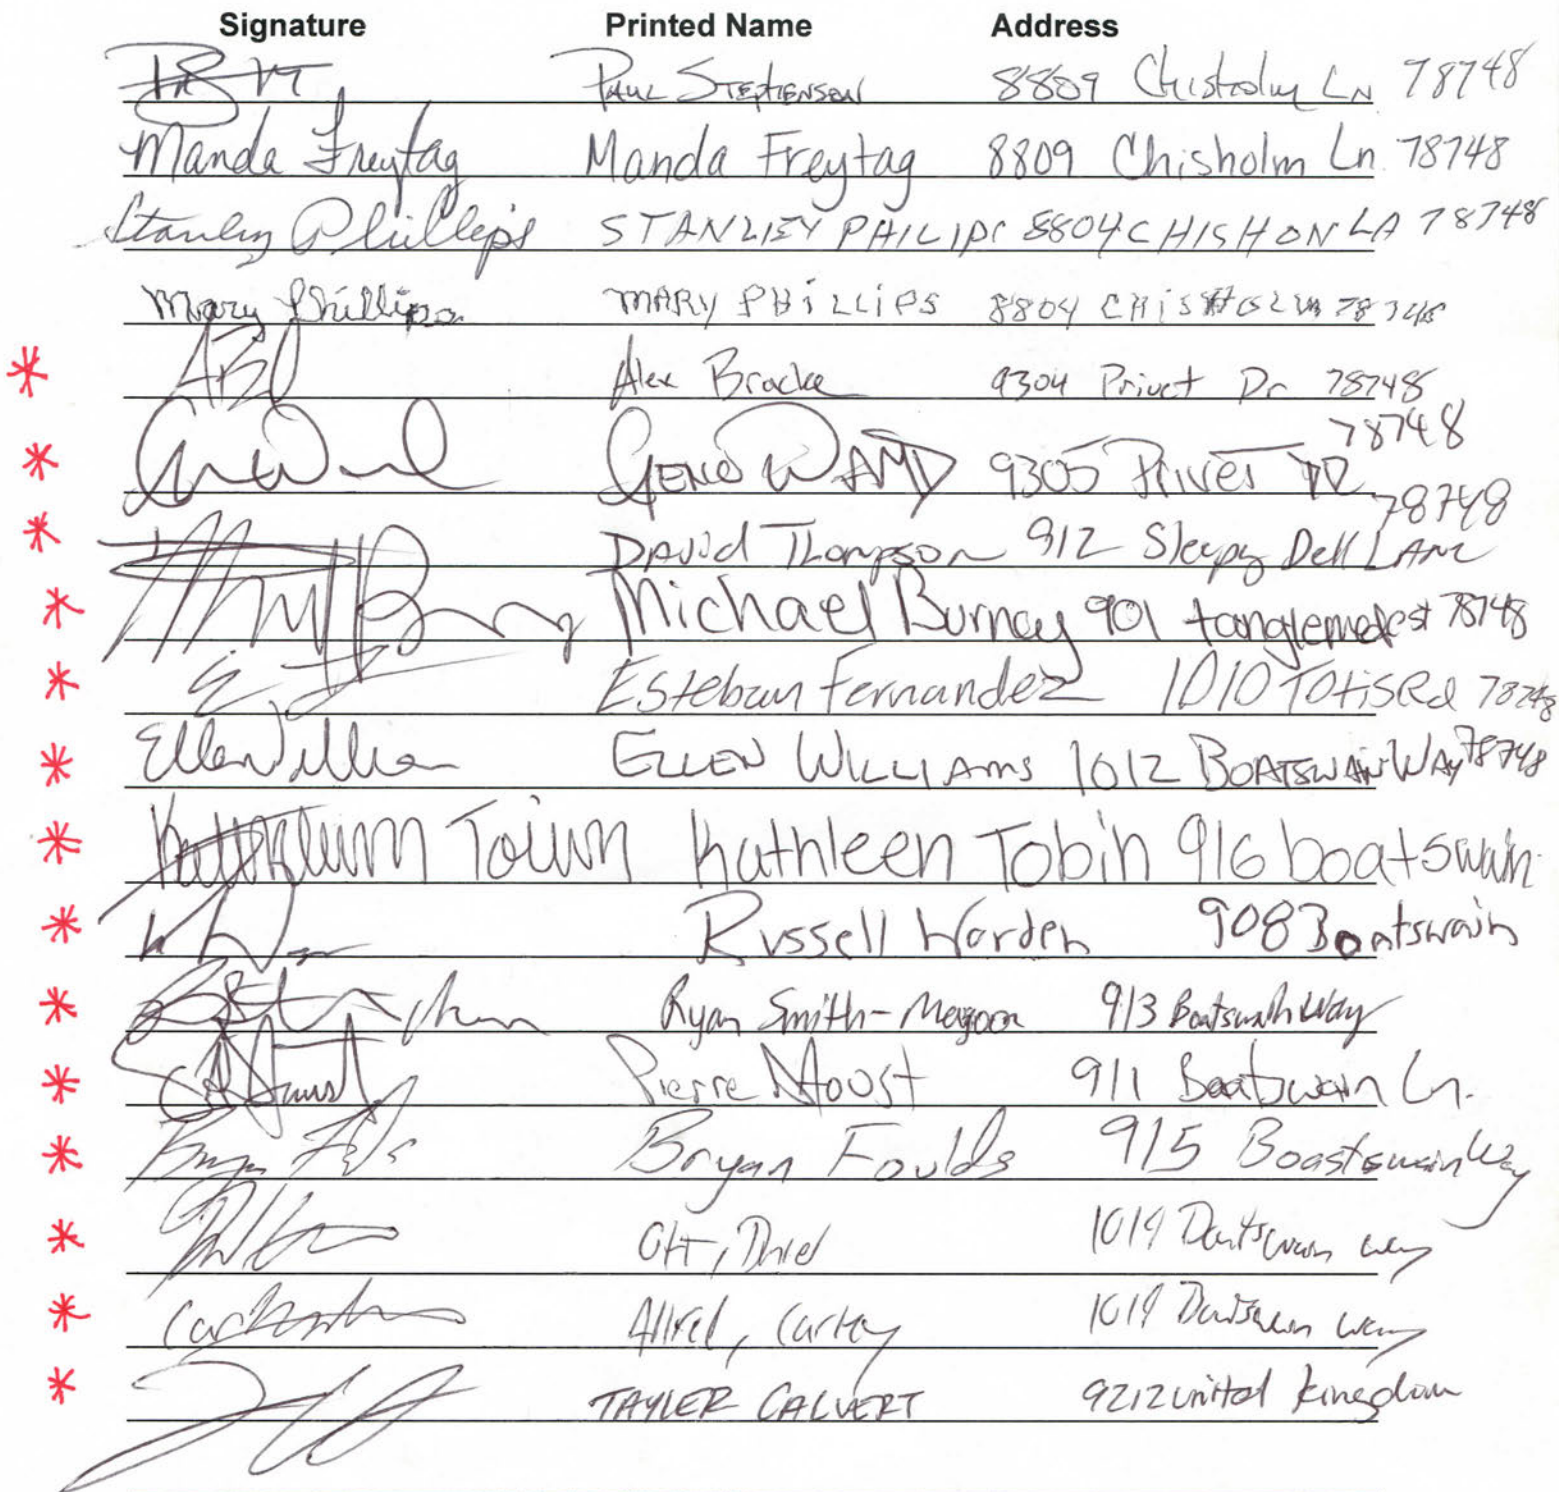 Signature Printed Name Address
PAUL STEPHENSON 8809 Chisholm LN 78748
Manda Freytag Manda Freytag 8809 Chisholm Ln 78748
Stanley Phillips STANLEY PHILIPS 8804 CHISHON LA 78748
Mary Phillips MARY PHiLLiPS 8804 CHiSHOLM 78748
* Alex Bracke 9304 Privet Dr 78748
* GENE WAND 9305 PRIVET DR 78748
* DAVID THOMPSON 912 Sleepy Dell LANE 78748
* Michael Burney 901 78748
* Esteban Fernandez 1010 78748
* Ellen Williams ELLEN WILLIAMS 1012 BOATSWAIN WAY 78748
* Kathleen Tobin 916 boatswain
* Russell Worden 908 Boatswain
* Ryan Smith- 913 Boatswain Way
* Pierre 911 Boatswain Ln.
* Bryan Foulds 915 Boastswain Way
* Ott, way
* way
* TAYLER CALVERT 9212 United kingdom